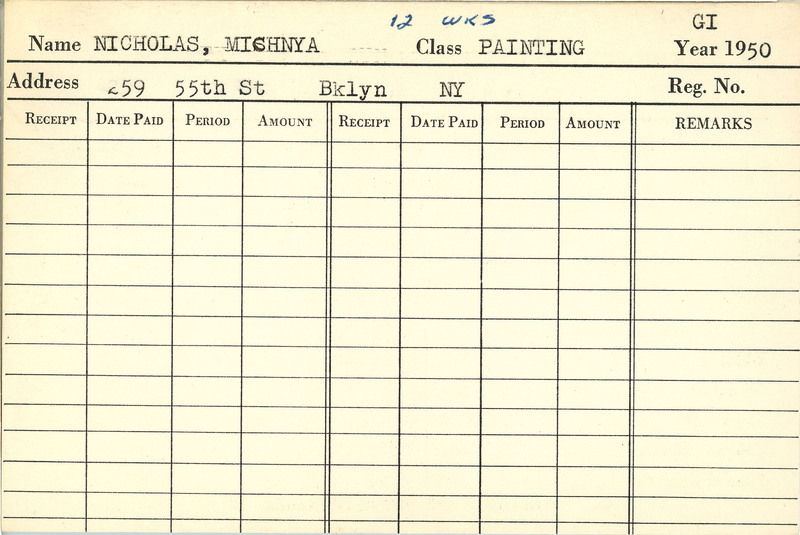 12 WKS GI
Name NICHOLAS, MICHNYA Class PAINTING Year 1950
Address 259 55th St Bklyn NY Reg. No.
RECEIPT DATE PAID PERIOD AMOUNT RECEIPT DATE PAID PERIOD AMOUNT REMARKS